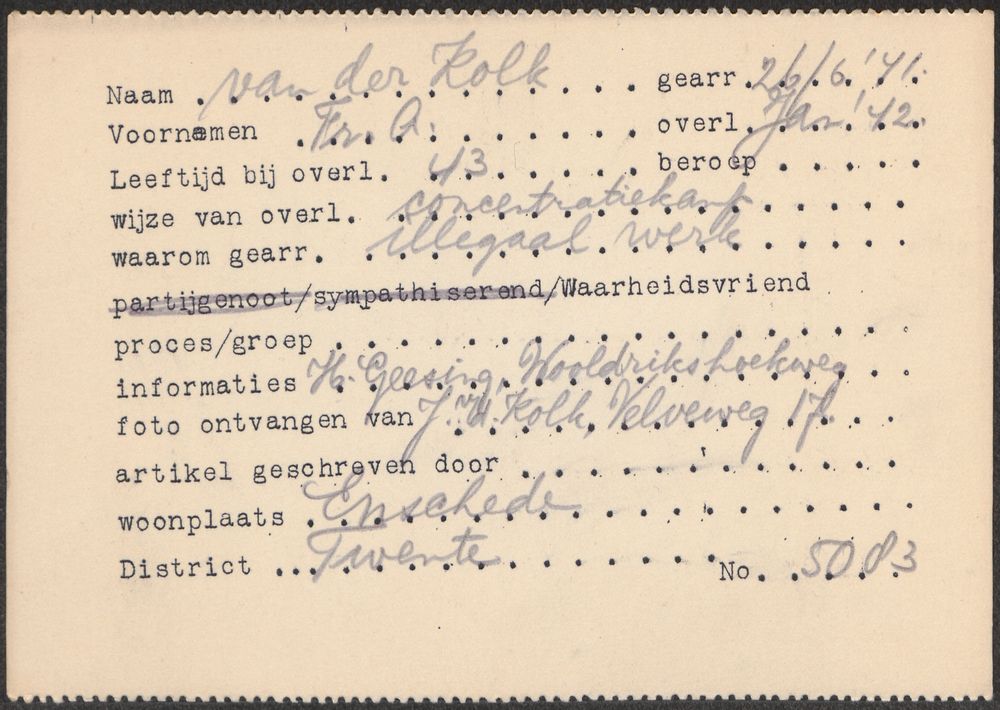 Naam van der Kolk gearr. 26/6 '41.
Voornamen Fr. A. overl. Jan '42.
Leeftijd bij overl. 43 beroep
wijze van overl. concentratiekamp
waarom gearr. illegaal werk
partijgenoot/sympathiserend/Waarheidsvriend
proces/groep
informaties H. Geesing, Wooldrikshoekweg
foto ontvangen van J. v.d. Kolk, Velveweg 17.
artikel geschreven door
woonplaats Enschede
District Twente No. 5083